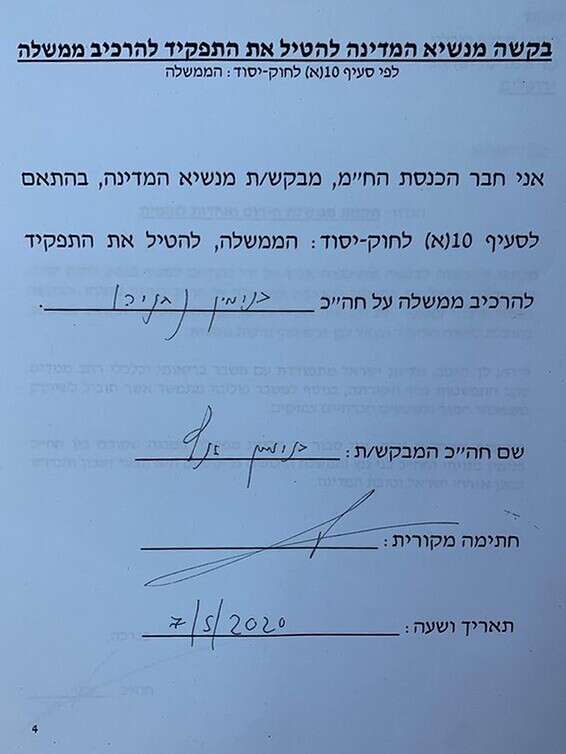 בקשה מנשיא המדינה להטיל את התפקיד להרכיב ממשלה
לפי סעיף 10(א) לחוק-יסוד: הממשלה
אני חבר הכנסת הח"מ, מבקש/ת מנשיא המדינה, בהתאם
לסעיף 10(א) לחוק-יסוד: הממשלה, להטיל את התפקיד
להרכיב ממשלה על חה"כ בנימין (ביבי).
שם חה"כ המבקש/ת: בנימין
חתימה מקורית:
תאריך ושעה: 7/5/2020
4